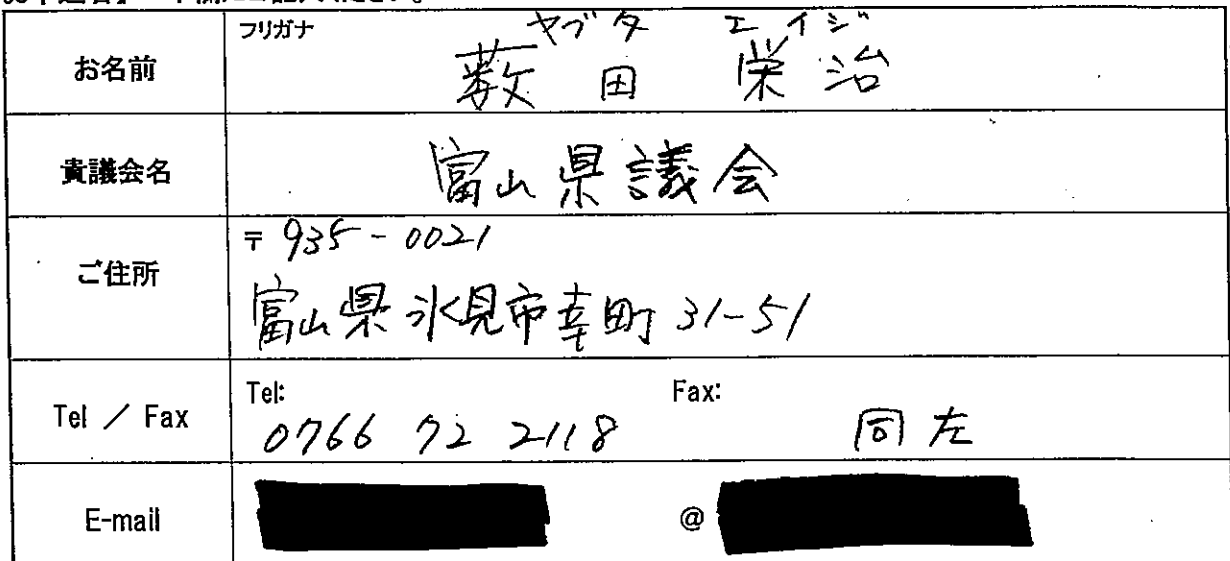 フリガナ
ヤブタ エイジ
お名前
薮田 栄治
貴議会名
富山県議会
ご住所
〒935-0021
富山県氷見市幸町31-51
Tel ／ Fax
Tel:
0766 72 2118
Fax:
同左
E-mail
@